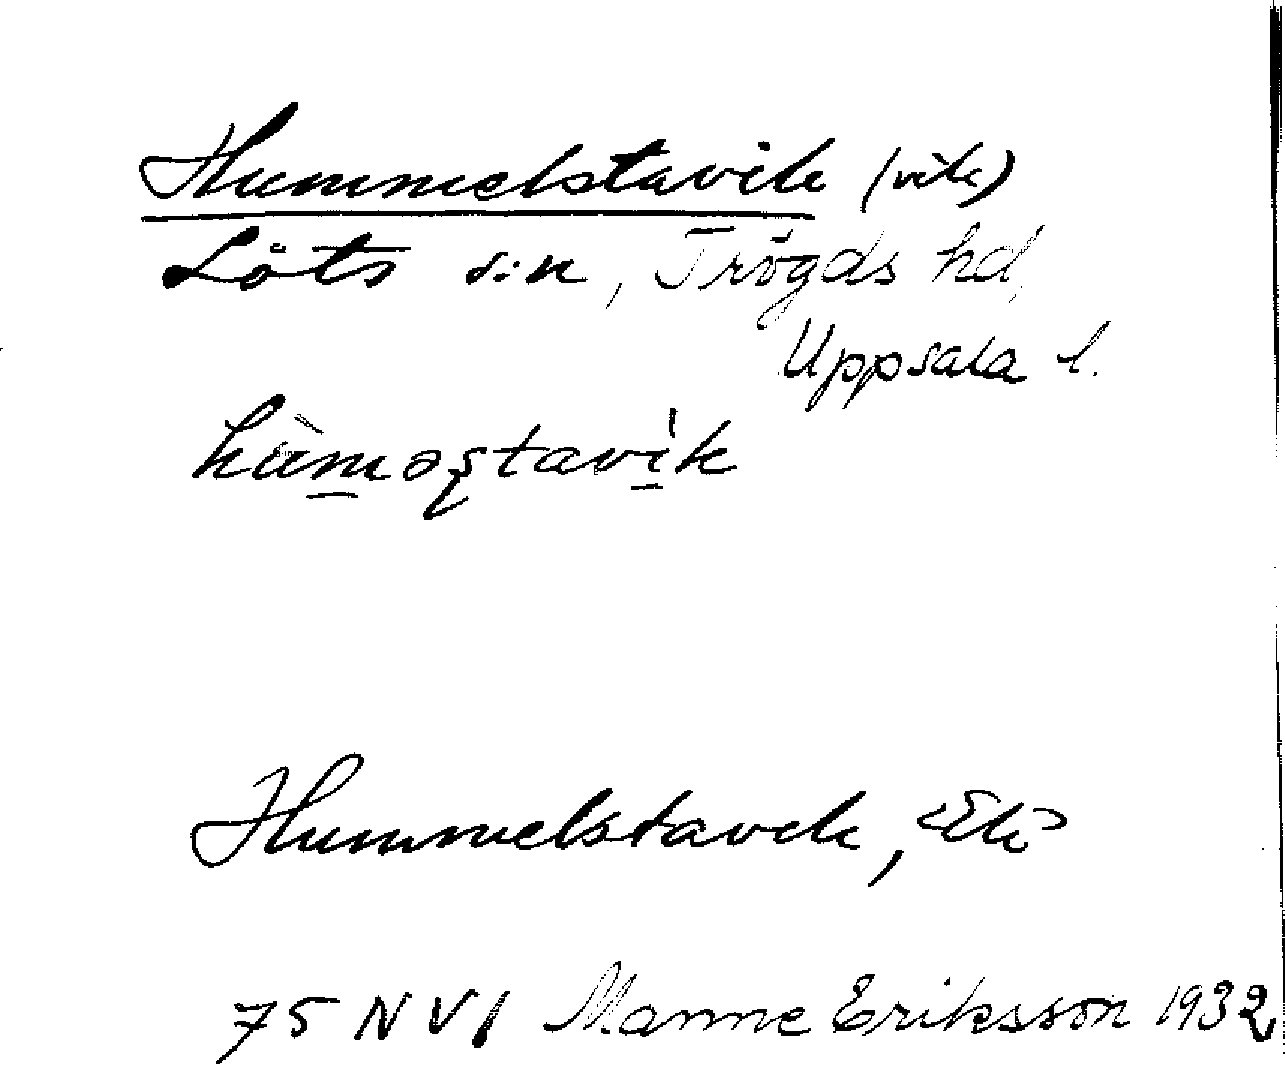 Hummelstavik (vik)
Löts s:n, Trögds hd,
Uppsala l.
Hummelstavik, Ek
75 N V 1 Manne Eriksson 1932